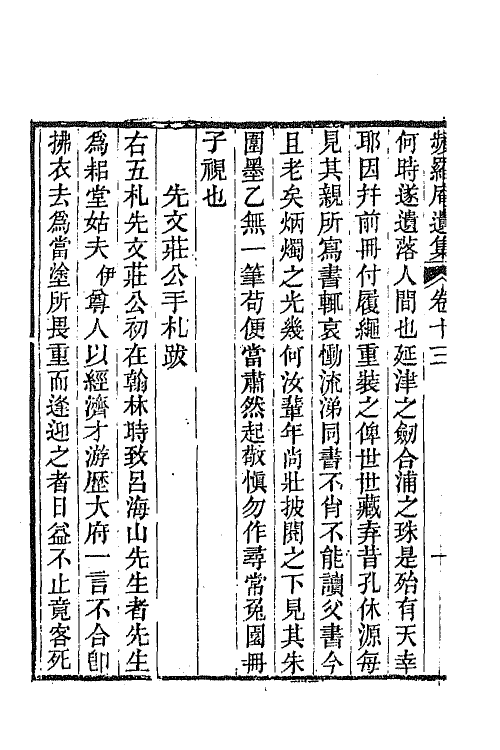 藐羅庵遺集 卷十三 十
何時遂遺落人間也延津之劒合浦之珠是殆有天幸
耶因幷前冊付履繩重裝之俾世世藏弆昔孔休源每
見其親所寫書輒哀慟流涕同書不肖不能讀父書今
且老矣炳燭之光幾何汝輩年尚壯披閱之下見其朱
圍墨乙無一筆苟便當肅然起敬愼勿作尋常兔園冊
子視也
先文莊公手札跋
右五札先文莊公初在翰林時致呂海山先生者先生
爲耜堂姑夫伊尊人以經濟才游歷大府一言不合卽
拂衣去爲當塗所畏重而逢迎之者日益不止竟客死